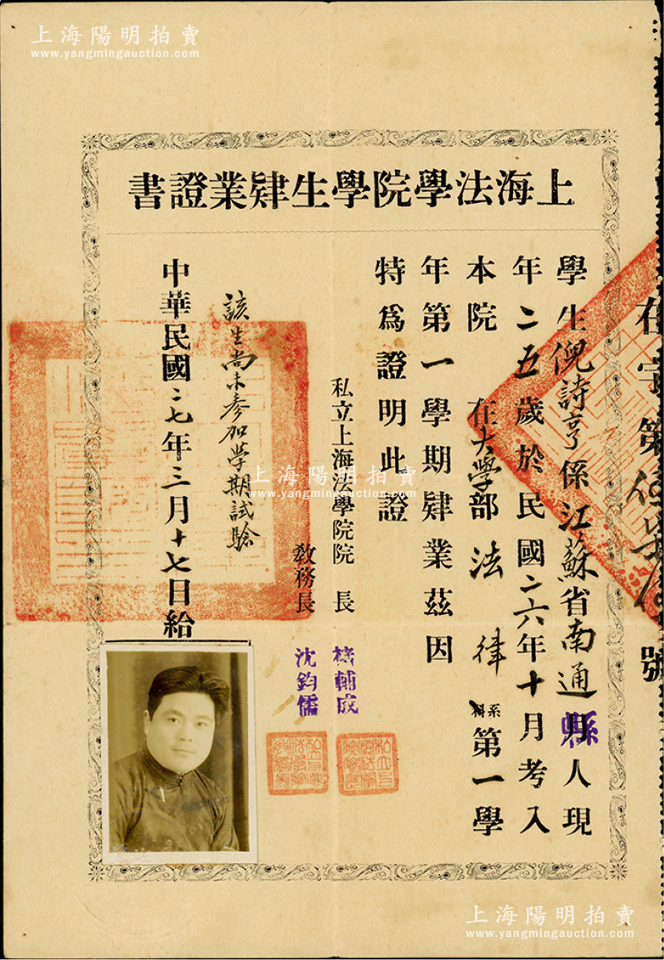 上海陽明拍賣
www.yangmingauction.com
上海法學院學生肄業證書
學生倪詩亨係江蘇省南通縣人現
年二五歲於民國二六年十月考入
本院在大學部法律系科第一學
年第一學期肄業茲因
特為證明此證
私立上海法學院院長 褚輔成
教務長 沈鈞儒
該生尚未參加學期試驗
中華民國二七年三月十七日給
在字第號
上海陽明拍賣
www.yangmingauction.com
上海陽明拍賣
www.yangmingauction.com